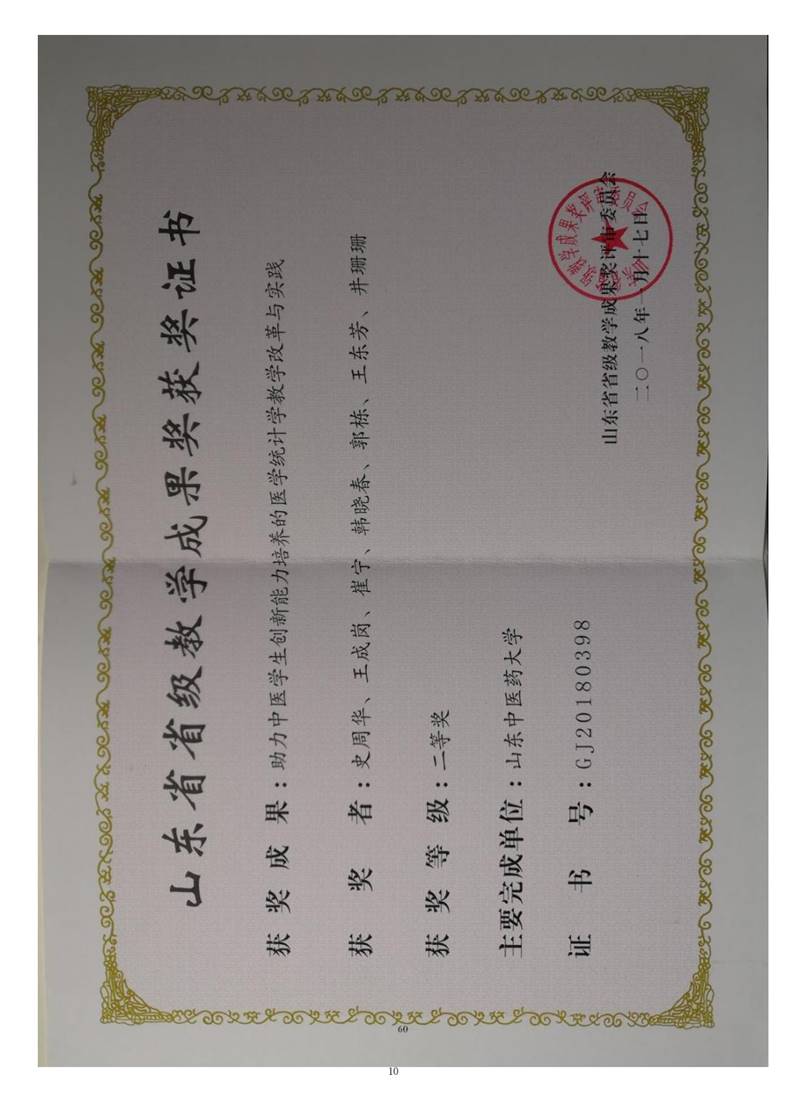 山东省省级教学成果奖获奖证书
获奖成果：助力中医学生创新能力培养的医学统计学教学改革与实践
获奖者：史周华、王成岗、崔宁、韩晓春、郭栋、王东芳、井珊珊
获奖等级：二等奖
主要完成单位：山东中医药大学
证书号：GJ20180398
山东省省级教学成果奖评审委员会
二〇一八年一月十七日
60
10